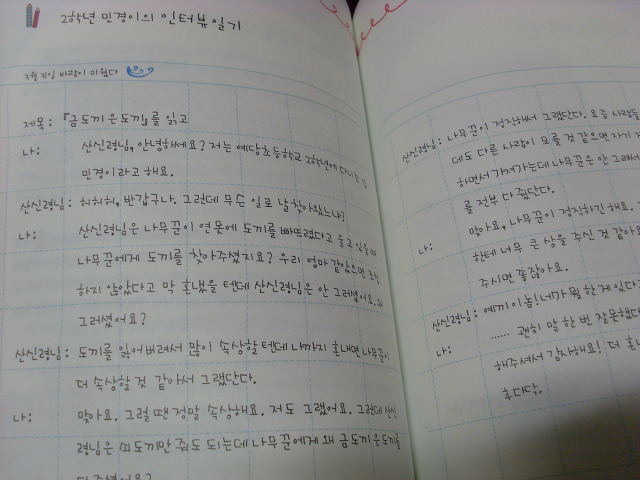 2학년 민경이의 인터뷰 일기
제목: 『금도끼 은도끼』를 읽고
나: 산신령님, 안녕하세요? 저는 예당초등학교 2학년에 다니는
민경이라고 해요.
산신령님: 허허허, 반갑구나. 그런데 무슨 일로 날 찾아왔느냐?
나: 산신령님은 나무꾼이 연못에 도끼를 빠뜨렸다고 울고 있을 때
나무꾼에게 도끼를 찾아주셨지요? 우리 엄마 같았으면
하지 않았다고 막 혼냈을 텐데 산신령님은 안 그러셨어요.
그러셨어요?
산신령님: 도끼를 잃어버려서 많이 속상할 텐데 나까지 혼내면 나무꾼이
더 속상할 것 같아서 그랬단다.
나: 맞아요. 그럴 땐 정말 속상해요. 저도 그랬어요. 그런데 산신
령님은 쇠도끼만 줘도 되는데 나무꾼에게 왜 금도끼 은도끼를
산신령님: 나무꾼이 정직해서 그랬단다. 요즘 사람들
데도 다른 사람이 모를 것 같으면 자기
하면서 가져가는데 나무꾼은 안 그래서
를 전부 다 줬단다.
나: 맞아요, 나무꾼이 정직하긴 해요.
한테 너무 큰 상을 주신 것 같아요
주시면 좋잖아요.
산신령님: 예끼 이놈! 네가 뭘 한 게 있다고
나: …… 괜히 말 한 번 잘못했다
해주셔서 감사해요! 더 혼나
후다닥.